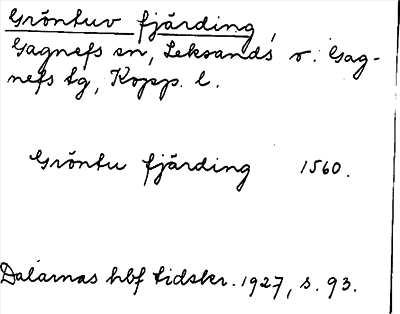 Gröntuv fjärding,
Gagnefs sn, Leksands o. Gag-
nefs tg, Kopp. l.
Gröntu fjärding 1560.
Dalarnas hbf tidskr. 1927, s. 93.